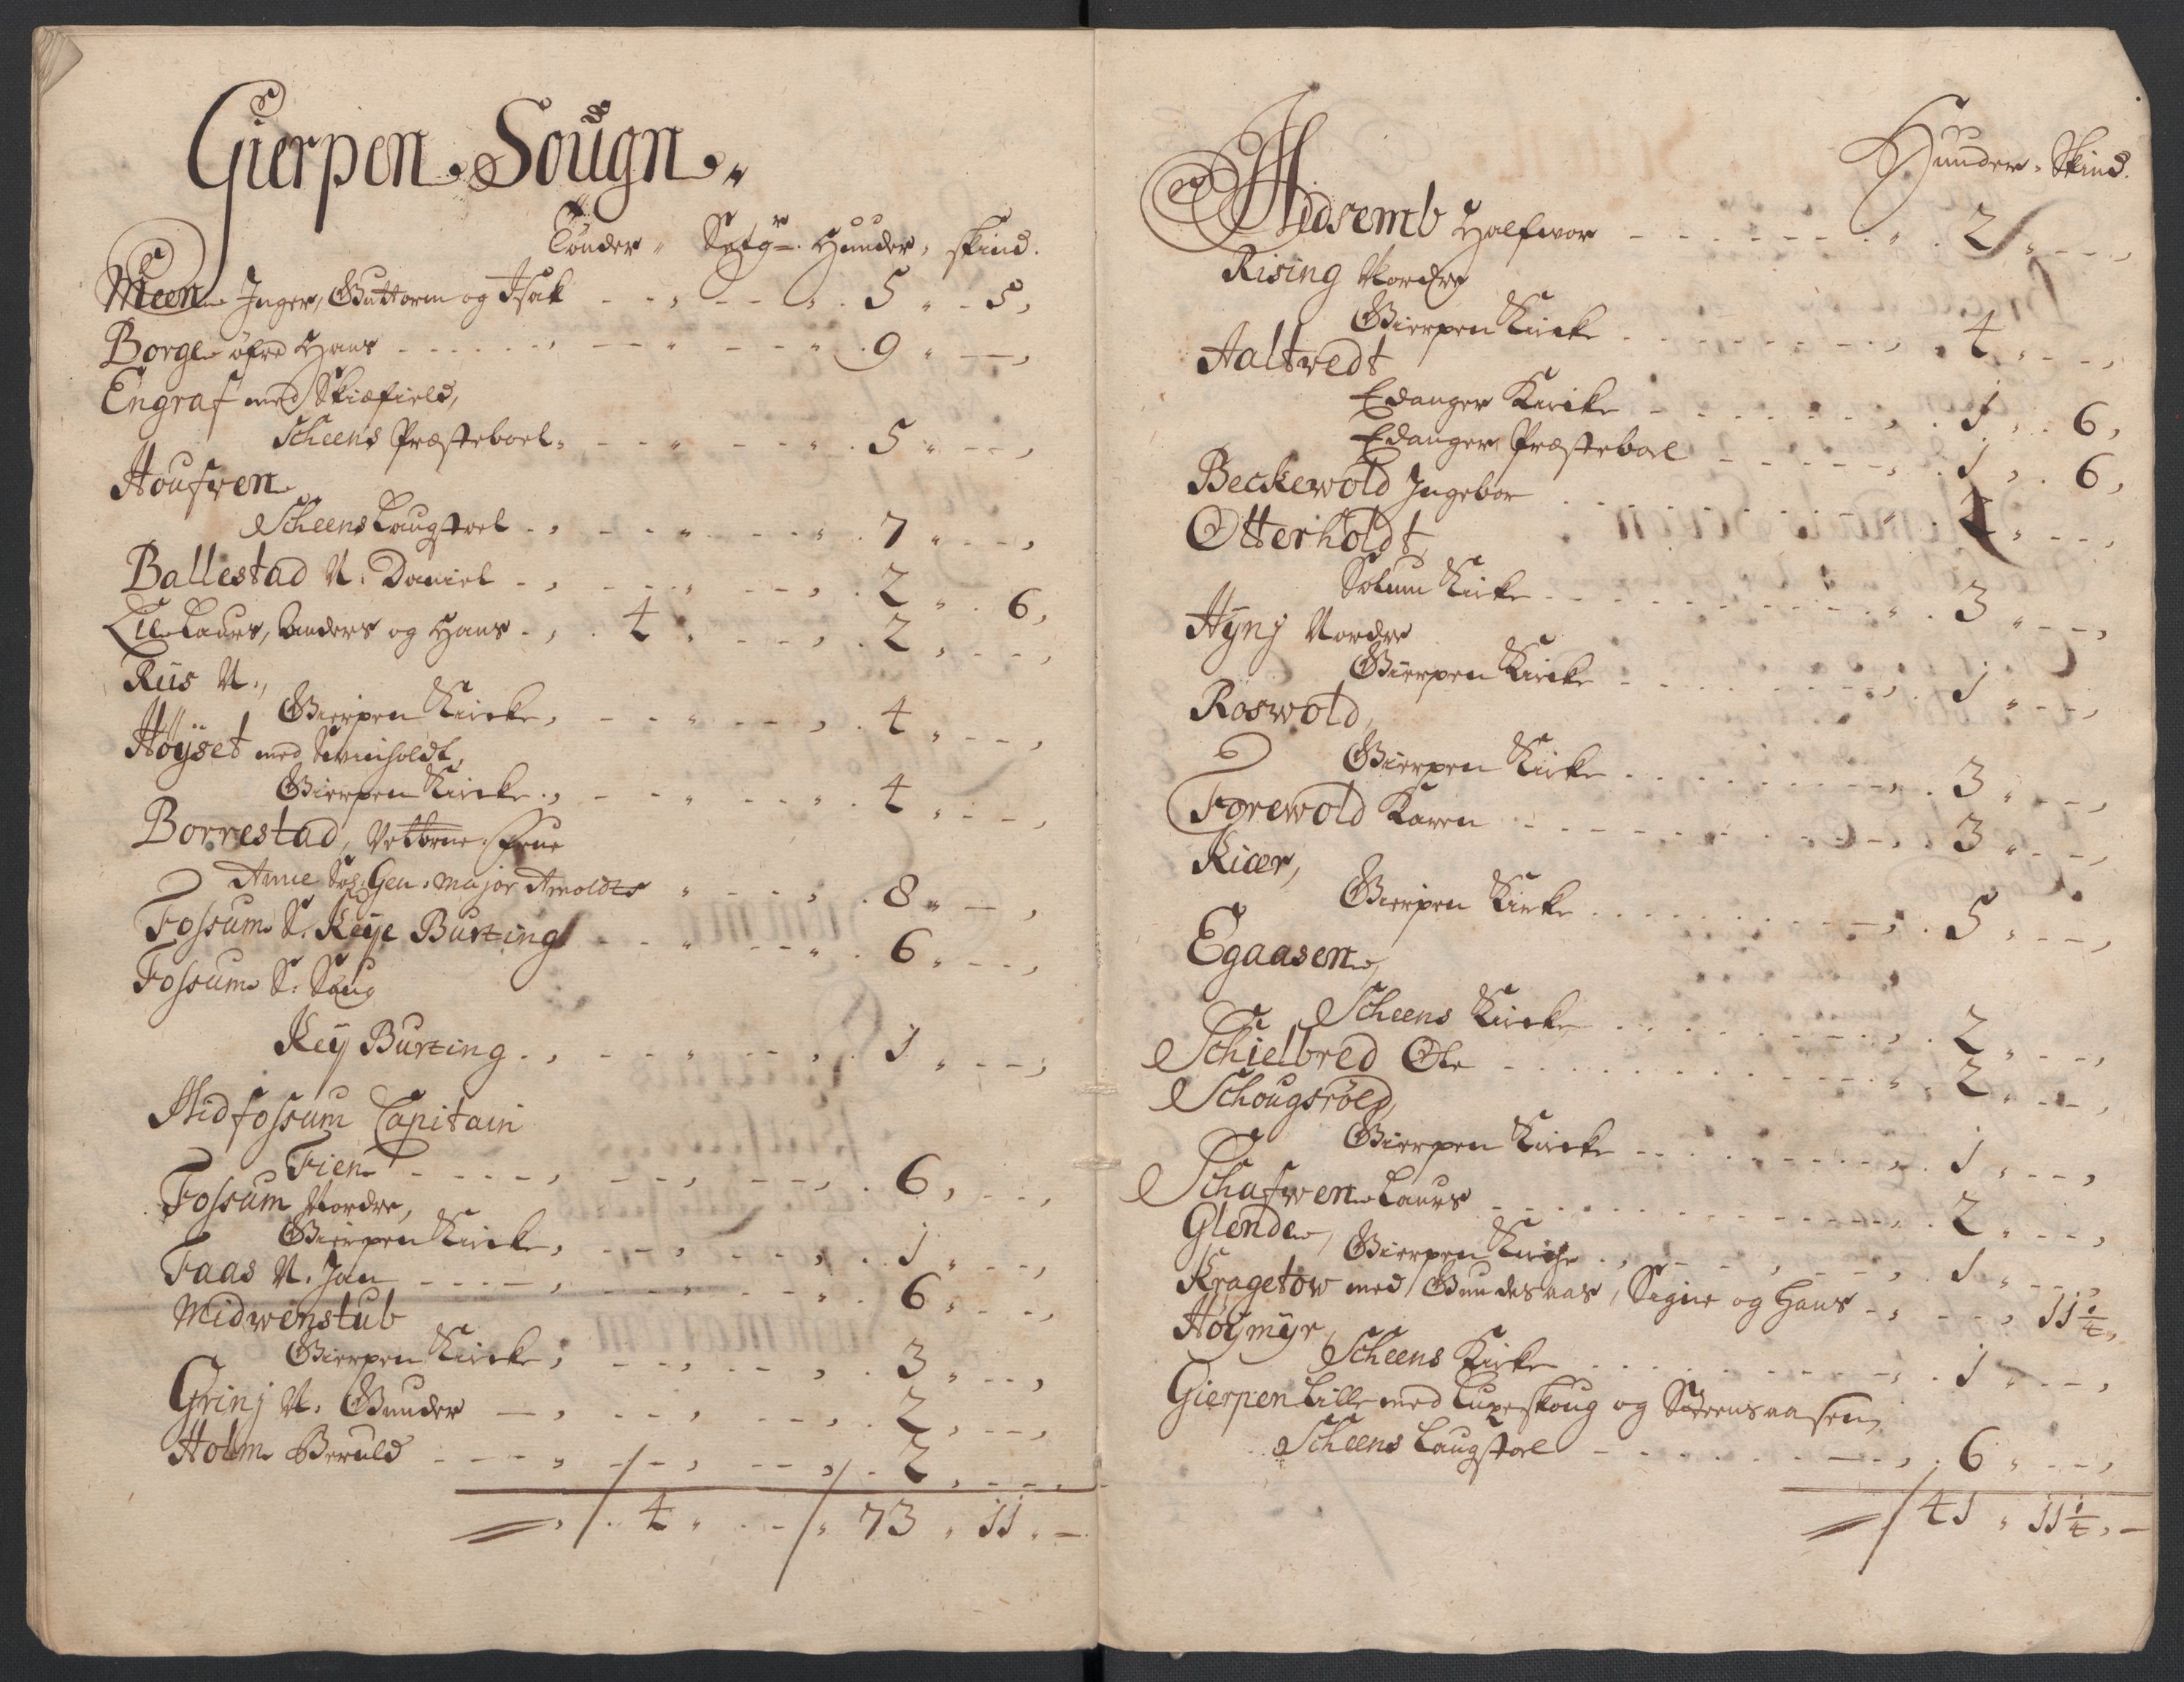 Gierpen Sougn
Tønder Setgr. Hunder, skind.
Meen Inger, Guttorm og Isak - - - 5 - 5,
Borge øfre Hans - - - 9 - -
Engraf med Skiæfield,
Scheens Præsteboel - - - 5 - -
Houfwen
Scheens Laugstoel - - - 7 - -
Ballestad N. Daniel - - - 2 - 6,
Lie Laurs, Anders og Hans - 4 - - 2 - -
Riis N.,
Gierpen Kircke, - - - 4 - -
Høyset med Svinholdt,
Gierpen Kircke, - - - 4 - -
Borrestad, Frue
Anne Sal. Gen. Major Arnoldts - - 8 - -
Fossum S. Keye Burting - - - 6 - -
Fossum S. Saug
Key Burting - - - 1 - -
Midfossum Capitain
Fien - - - 6, - -
Fossum Nordre,
Gierpen Kircke, - - - 1 - -
Faas N. Jan - - - 6 - -
Midwenstub
Gierpen Kircke, - - - 3 - -
Grinj N. Gunder - - - 2 - -
Holm Beruld - - - 2 - -
4 - - 73 - 11 -
Hunder, Skind.
Aldsemb Halfwor - - - 2 - -
Rising Nordre
Gierpen Kircke - - - 4 - -
Aaltvedt
Edanger Kircke - - - 1 - 6,
Edanger Præsteboel - - - 1 - 6,
Beckewold Ingebor - - - 2 - -
Otterholdt,
Solum Kircke - - - 3 - -
Hynj Nordre
Gierpen Kircke - - - 1 - -
Roswold,
Gierpen Kircke - - - 3 - -
Forewold Karen - - - 3 - -
Kiær,
Gierpen Kircke - - - 5 - -
Egaasen,
Scheens Kircke - - - 2 - -
Schielbred Ole - - - 2 - -
Schougsrøed,
Gierpen Kircke - - - 1 - -
Schafwen Laurs - - - 2 - -
Glende, Gierpen Kirche - - - 1 - -
Kragetow med Gundesaas, Signe og Hans - - - 11 1/4
Høymyr,
Scheens Kircke - - - 1 - -
Gierpen Lille med Luxeskoug og Steensaasen,
Scheens Laugstoel - - - 6 - -
41 - 11 1/4 -